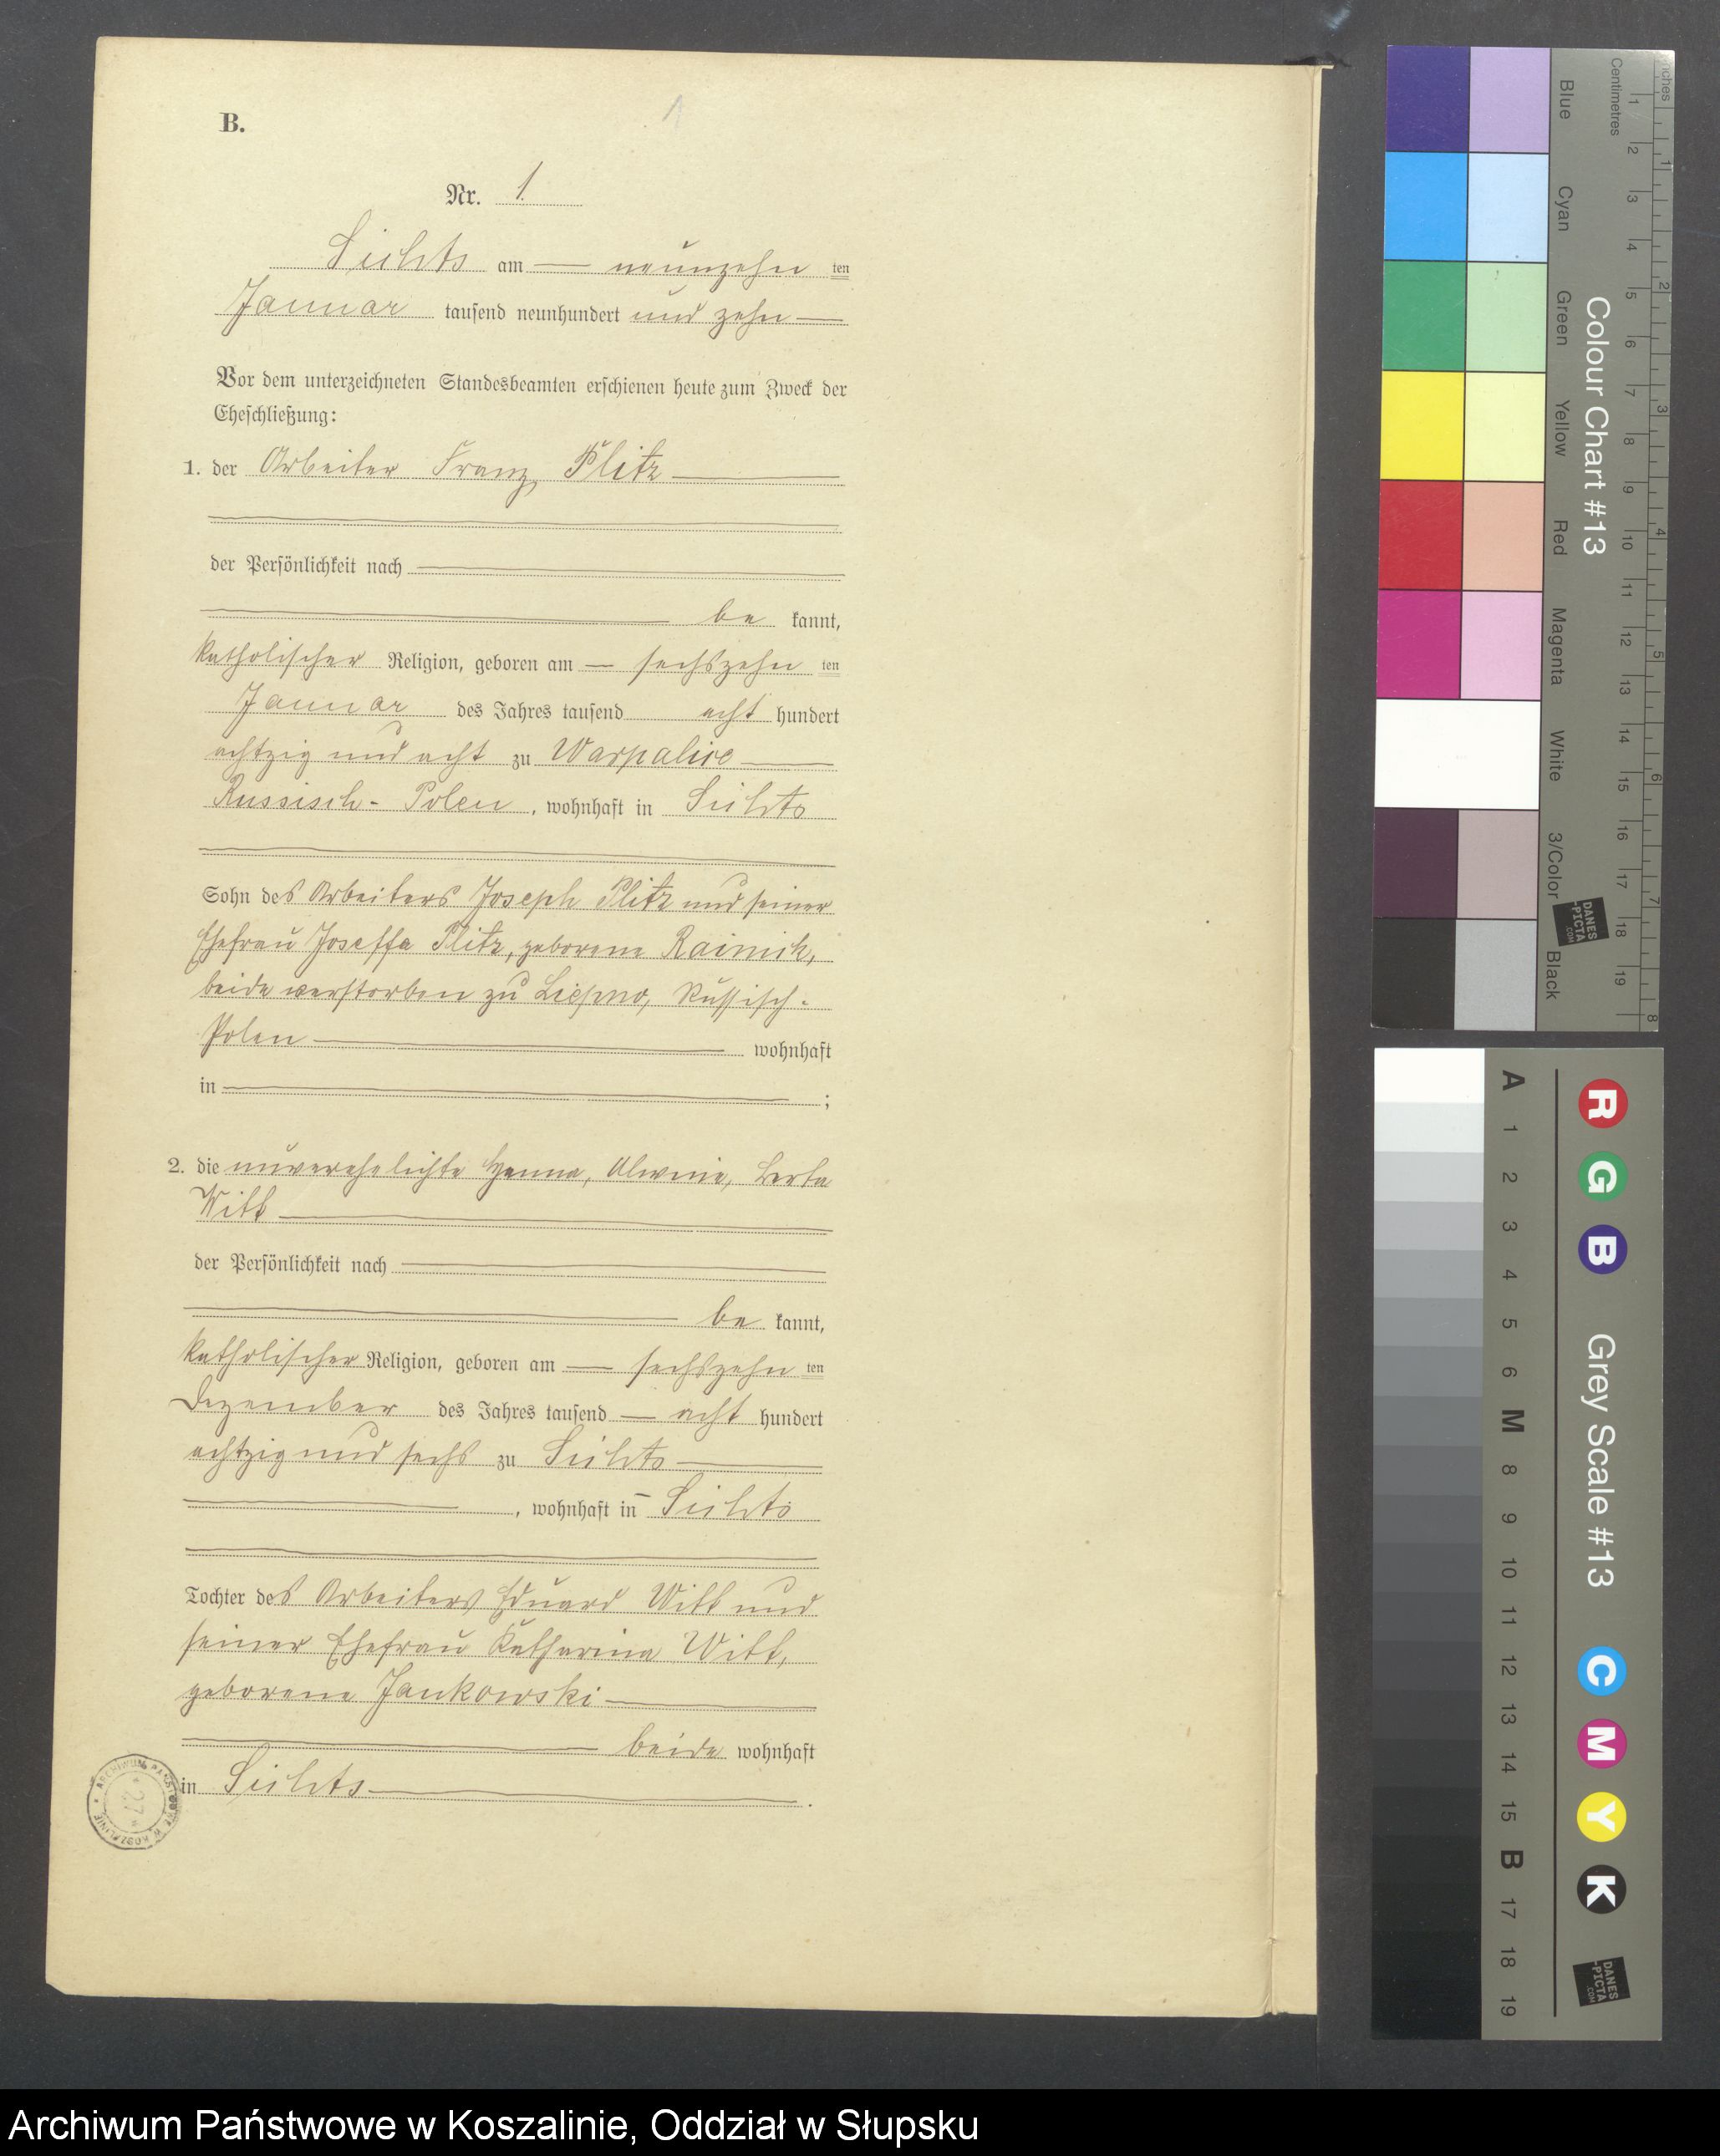 B.
1
Nr. 1.
Sichts am — neunzehn ten
Januar tausend neunhundert und zehn —
Vor dem unterzeichneten Standesbeamten erschienen heute zum Zweck der
Eheschließung:
1. der Arbeiter Franz Plitz
der Persönlichkeit nach
be kannt,
katholischer Religion, geboren am — sechszehn ten
Januar des Jahres tausend acht hundert
achtzig und acht zu Warpalice
Russisch-Polen, wohnhaft in Sichts
Sohn des Arbeiters Joseph Plitz und seiner
Ehefrau Joseffa Plitz, geborene Rainich,
beide verstorben zu Russisch-
Polen wohnhaft
in ;
2. die unverehelichte Hanna, Alwine, Berta
Witt
der Persönlichkeit nach
be kannt,
katholischer Religion, geboren am — sechszehn ten
Dezember des Jahres tausend — acht hundert
achtzig und sechs zu Sichts
, wohnhaft in Sichts
Tochter des Arbeiters Eduard Witt und
seiner Ehefrau Katharina Witt,
geborene Jankowski
beide wohnhaft
in Sichts .
ARCHIWUM PAŃSTWOWE W KOSZALINIE
* 27 *
Colour Chart #13
Blue Cyan Green Yellow Red Magenta White 3/Color Black
Centimetres 1 2 3 4 5 6 7 8 9 10 11 12 13 14 15 16 17 18 19
inches 1 2 3 4 5 6 7 8
DANES-PICTA.COM
Grey Scale #13
R G B C M Y K
A 1 2 3 4 5 6 M 8 9 10 11 12 13 14 15 B 17 18 19
DANES-PICTA.COM
Archiwum Państwowe w Koszalinie, Oddział w Słupsku